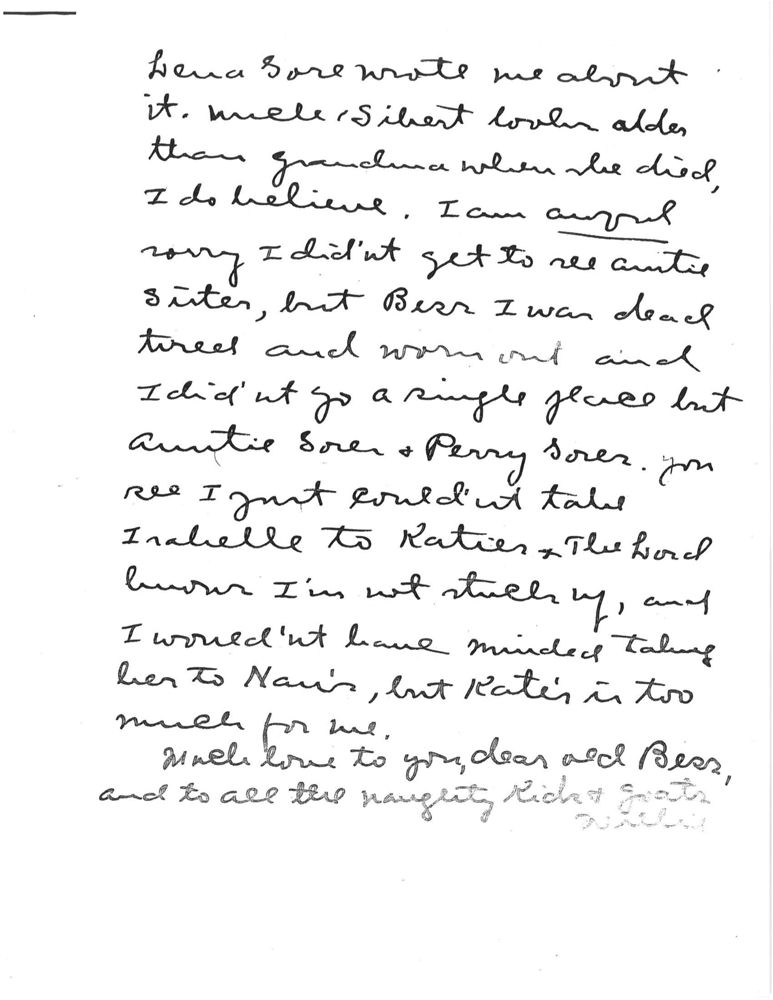 Lena Gore wrote me about
it. Uncle Sibert looks older
than grandma when she died,
I do believe. I am awful
sorry I did'nt get to see auntie
Sister, but Bess I was dead
tired and worn out and
I did'nt go a single place but
Auntie Gores & Perry Gores. You
see I just could'nt take
Isabelle to Katies & The Lord
knows I'm not stuck up, and
I would'nt have minded taking
her to Nan's, but Kate's is too
much for me.
Much love to you, dear old Bess,
and to all the naughty Kids & goats
Willie